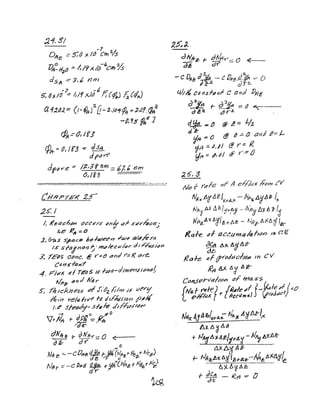 24.31
D_AE = 5.0 x 10^-7 cm²/s
D°_A-H2O = 1.19 x 10^-6 cm²/s
d_sA = 3.6 nm
5.0 x 10^-7 = 1.19 x 10^-6 F1(φ) F2(φ)
0.4202 = (1-φ)² [1-2.104φ + 2.09φ³
-0.95φ⁵]
φ = 0.183
φ = 0.183 = d_sA / d_pore
d_pore = 12.38 nm / 0.183 = 67.6 nm
CHAPTER 25
25.1
1. Reaction occurs only at surface;
i.e. R_A = 0
2. Gas space between two wafers
is stagnant; molecular diffusion
3. TEOS conc. @ r=0 and r=R are
constant
4. Flux of TEOS is two-dimensional,
N_Az and N_Ar
5. Thickness of SiO2 film is very
thin relative to diffusion path
i.e. steady-state diffusion
∇·N_A + ∂C_A/∂t = R_A
∂N_Az/∂z + ∂N_Ar/∂r = 0
N_Az = -C D_AE ∂y_A/∂z + y_A(N_Az + N_Bz + N_Cz)
N_Ar = -C D_AE ∂y_A/∂r + y_A(N_Ar + N_Br + N_Cr)
25.2
∂N_Az/∂z + ∂N_Ar/∂r = 0
-C D_AE ∂²y_A/∂z² - C D_AE ∂²y_A/∂r² = 0
With constant C and D_AE
∂²y_A/∂z² + ∂²y_A/∂r² = 0
dy_A/dz = 0 @ z = L/2
y_A = 0 @ z = 0 and z = L
y_A = A01 @ r = R
y_A = A01 @ r = 0
25.3
Net rate of A efflux from CV
N_Ax Δy Δz|x+Δx - N_Ax Δy Δz|x
N_Ay Δx Δz|y+Δy - N_Ay Δx Δz|y
N_Az Δx Δy|z+Δz - N_Az Δx Δy|z
Rate of accumulation in CV
∂C_A/∂t Δx Δy Δz
Rate of production in CV
R_A Δx Δy Δz
Conservation of mass
{Net rate of efflux} + {Rate of accumul.} - {Rate of product} = 0
N_Ax Δy Δz|x+Δx - N_Ax Δy Δz|x
Δx Δy Δz
+ N_Ay Δx Δz|y+Δy - N_Ay Δx Δz|y
Δx Δy Δz
+ N_Az Δx Δy|z+Δz - N_Az Δx Δy|z
Δx Δy Δz
+ ∂C_A/∂t - R_A = 0